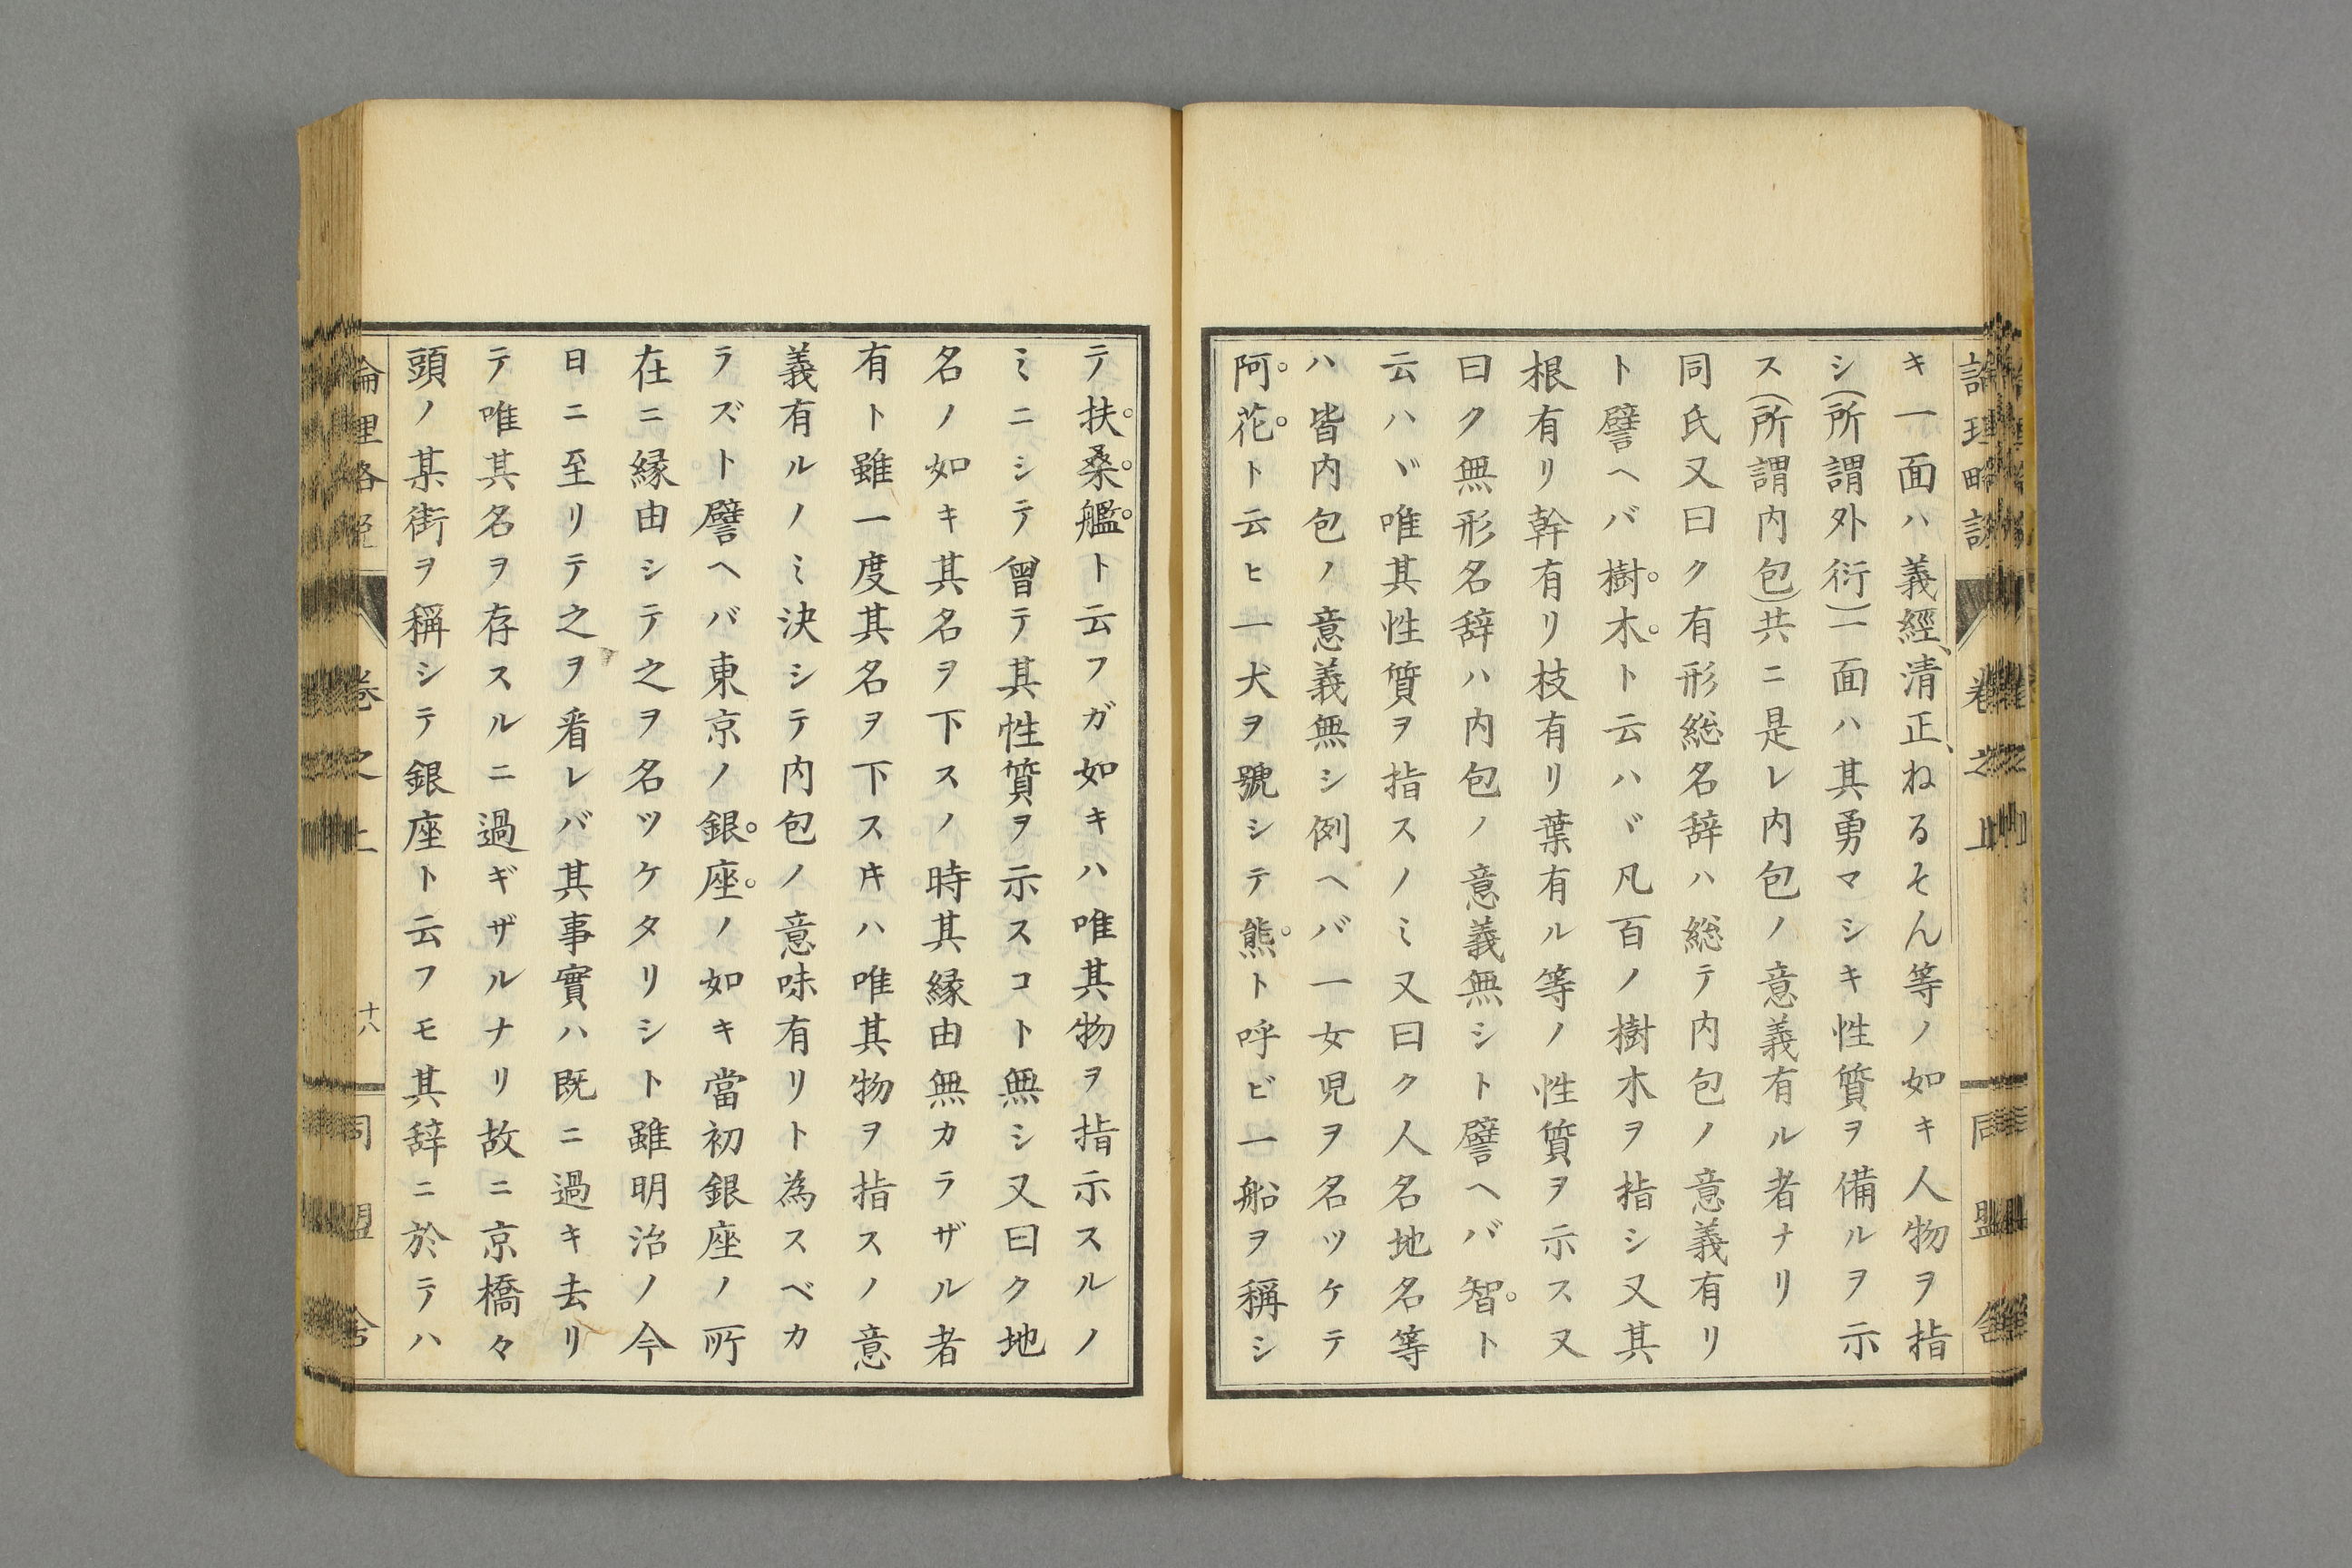 キ一面ハ義經、清正、ねるそん等ノ如キ人物ヲ指
シ(所謂外衍)一面ハ其勇マシキ性質ヲ備ルヲ示
ス(所謂内包)共ニ是レ内包ノ意義有ル者ナリ
同氏又曰ク有形総名辞ハ総テ内包ノ意義有リ
ト譬ヘバ樹木ト云ハヾ凡百ノ樹木ヲ指シ又其
根有リ幹有リ枝有リ葉有ル等ノ性質ヲ示ス又
曰ク無形名辞ハ内包ノ意義無シト譬ヘバ智ト
云ハヾ唯其性質ヲ指スノミ又曰ク人名地名等
ハ皆内包ノ意義無シ例ヘバ一女児ヲ名ツケテ
阿花ト云ヒ一犬ヲ號シテ熊ト呼ビ一船ヲ稱シ
テ扶桑艦ト云フガ如キハ唯其物ヲ指示スルノ
ミニシテ曾テ其性質ヲ示スコト無シ又曰ク地
名ノ如キ其名ヲ下スノ時其縁由無カラザル者
有ト雖一度其名ヲ下スキハ唯其物ヲ指スノ意
義有ルノミ決シテ内包ノ意味有リト為スベカ
ラズト譬ヘバ東京ノ銀座ノ如キ當初銀座ノ所
在ニ縁由シテ之ヲ名ツケタリシト雖明治ノ今
日ニ至リテ之ヲ看レバ其事實ハ既ニ過キ去リ
テ唯其名ヲ存スルニ過ギザルナリ故ニ京橋々
頭ノ某街ヲ稱シテ銀座ト云フモ其辞ニ於テハ
論理略説
卷之上
十八
同盟舎